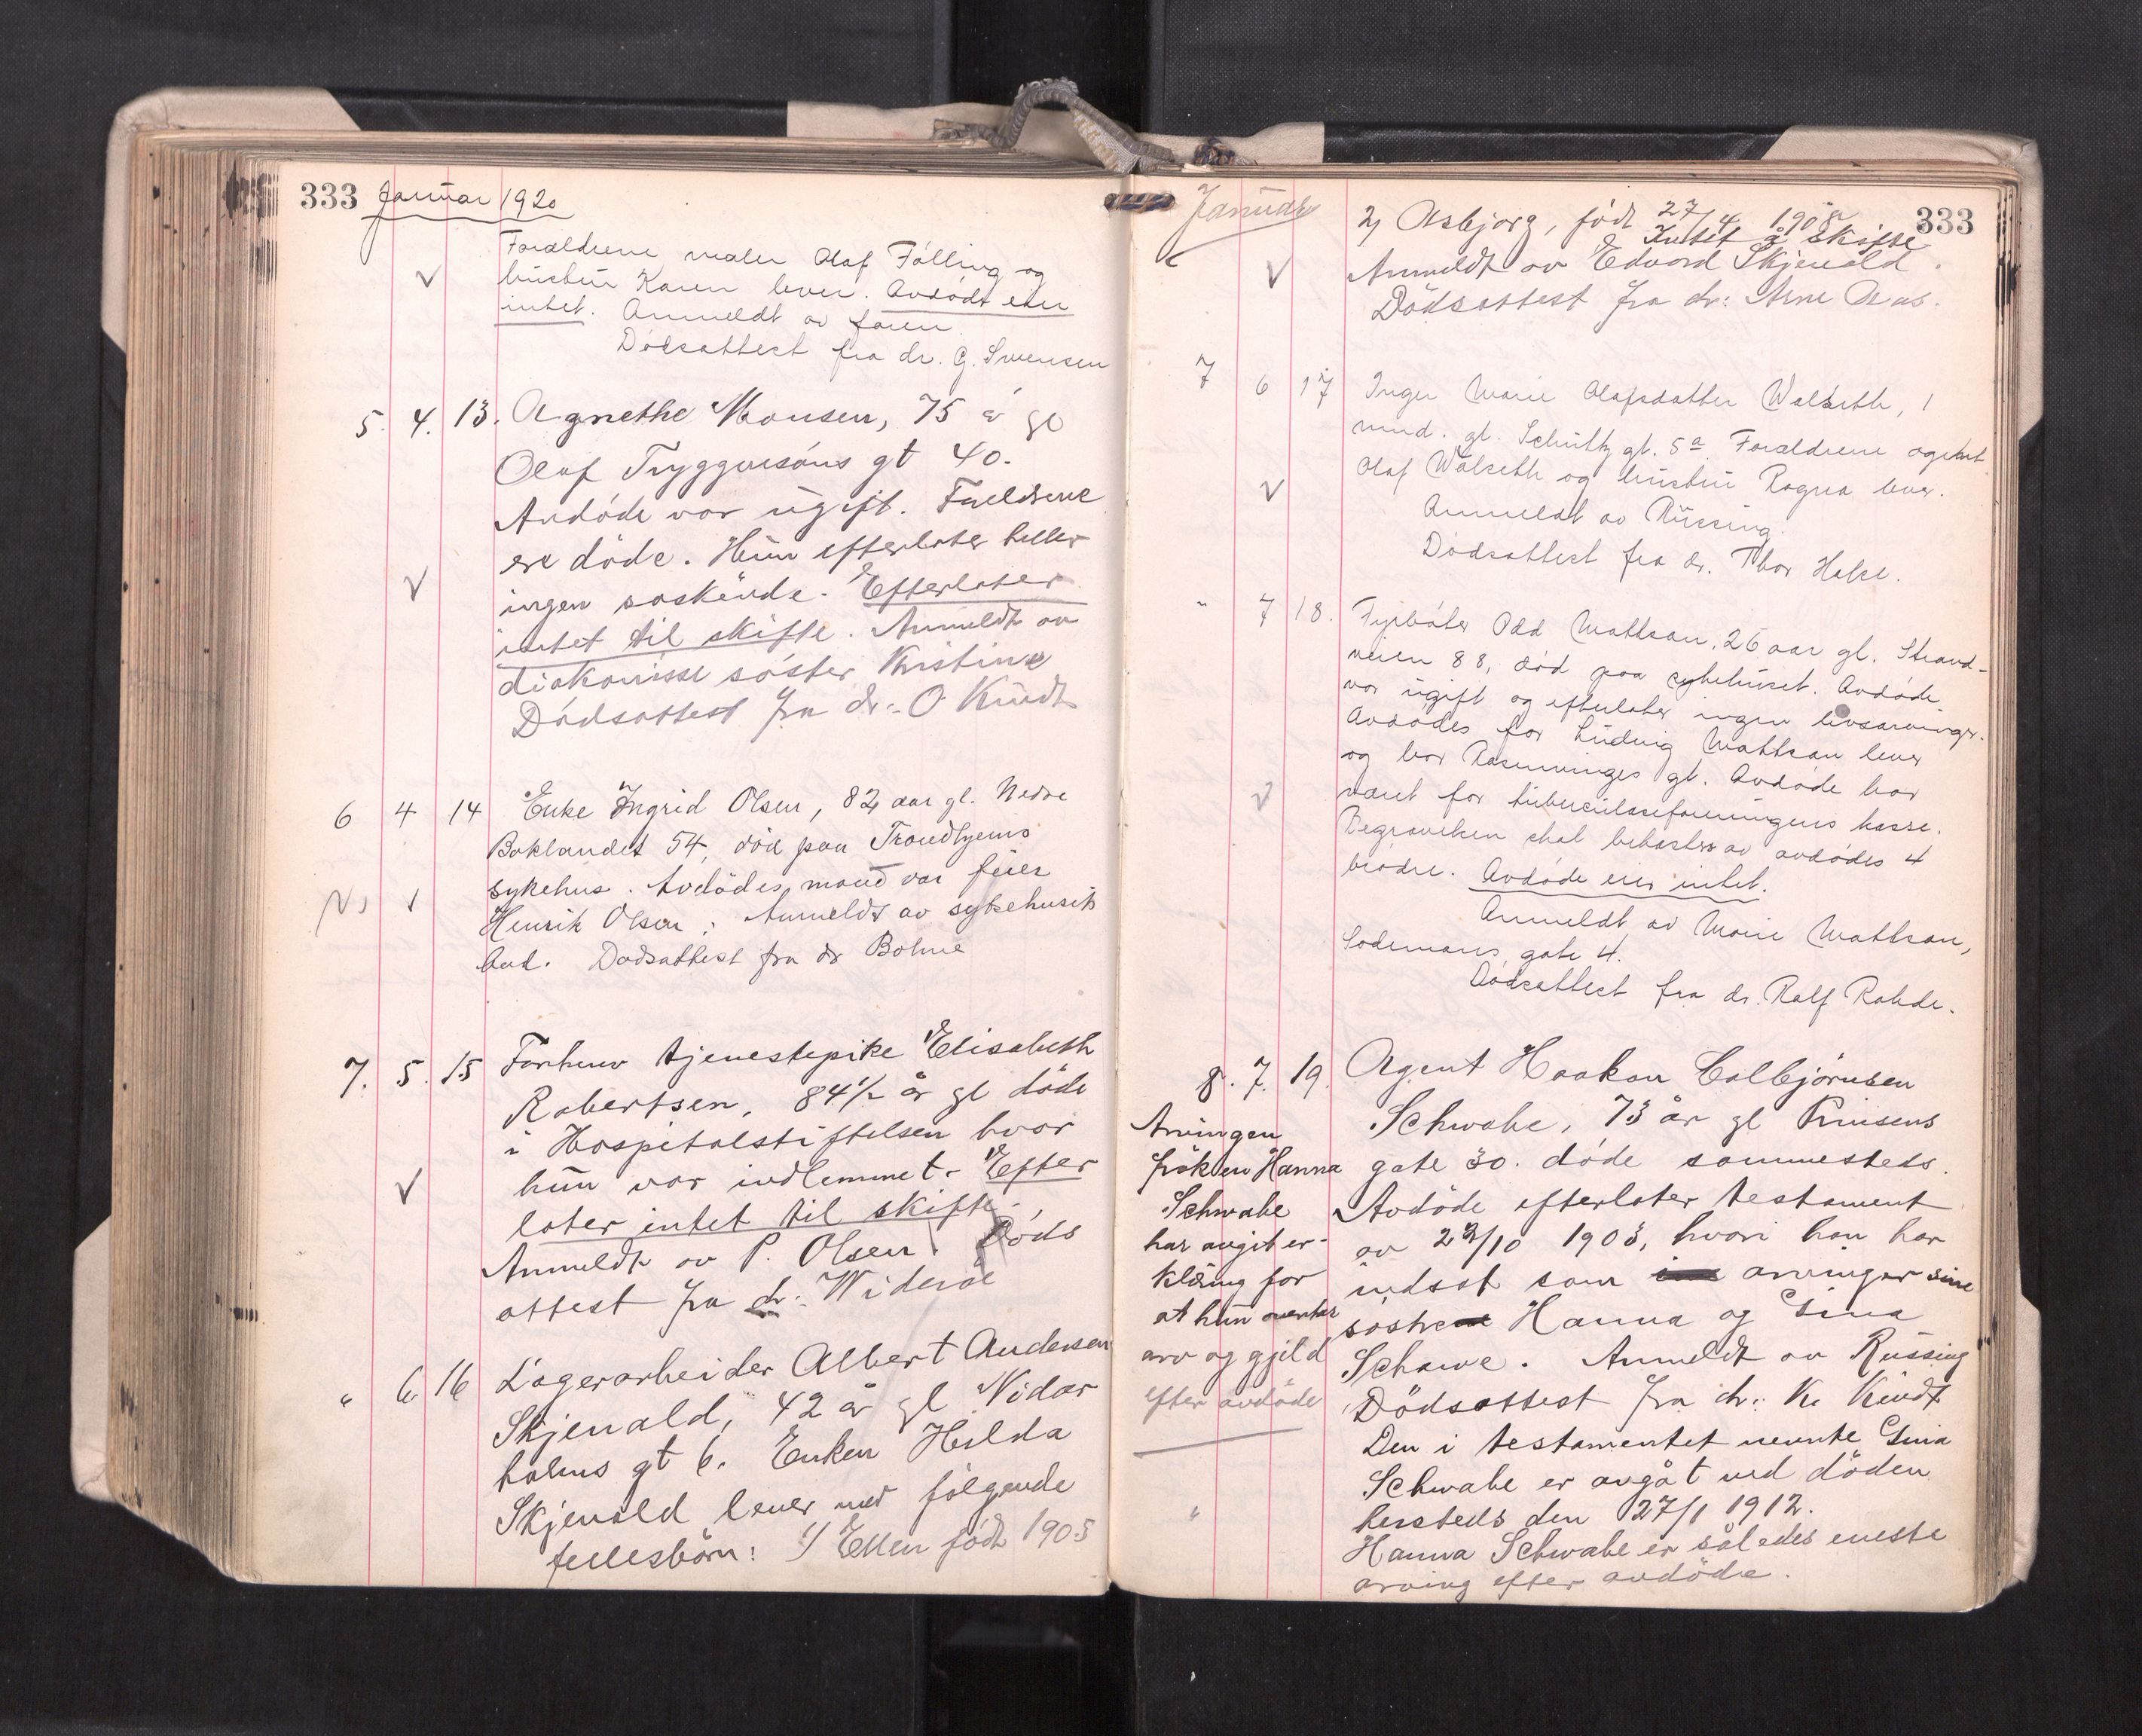 333 Januar 1920
Forældrene maler Olaf Fölling og
hustru Karen lever. Avdödt eier
intet. Anmeldt av faren
Dödsattest fra dr. G. Swensen
5. 4. 13. Agnethe Monsen, 75 år gl
Olaf Tryggvesöns gt 40.
Avdöde var ugift. Foreldrene
ere döde. Hun efterlater heller
ingen söskende. Efterlater
intet til skifte. Anmeldt av
diakonisse söster Kristine
Dödsattest fra dr: O Kindt
6 4 14 Enke Ingrid Olsen, 82 aar gl. Nedre
Baklandet 54, död paa Trondhjems
sykehus. Avdödes mand var feier
Henrik Olsen; Anmeldt av sykehusets
bud. Dødsattest fra dr Bohne
7. 5. 15 Forhenv tjenestepike Elisabeth
Robertsen, 84 1/2 år gl döde
i Hospitalstiftelsen hvor
hun var indlemmet. Efter
later intet til skifte.
Anmeldt av P. Olsen. Döds
attest fra dr: Wideröe
" 6 16 Lagerarbeider Albert Andersen
Skjenald, 42 år gl Nidar
holms gt 6. Enken Hilda
Skjenald lever med fölgende
fellesbörn: 1/ Ellen födt 1905
Januar 333
2/ Asbjorg, födt 27/4 1908
Intet å skifte
Anmeldt av Edvard Skjenald.
Dödsattest fra dr: Arne Aas.
7 6 17 Inger Marie Olafsdatter Walseth, 1
mnd. gl. Schultz gt. 5a Forældrene agent
Olaf Walseth og hustru Ragna lever.
Anmeldt av Russing.
Dödsattest fra dr. Thor Halse.
" 7 18. Fyrböter Odd Mattson, 26 aar gl. Strand-
veien 88, död paa sykehuset. Avdöde
var ugift og efterlater ingen livsarvinger.
Avdödes far Ludvig Mattson lever
og bor Rosenvinges gt. Avdöde har
været for tuberculoseforeningens kasse.
Begravelsen skal bekostes av avdödes 4
brödre. Avdöde eier intet.
Anmeldt av Marie Mattson,
Lodemans gate 4.
Dödsattest fra dr. Ralf Rohde.
8. 7. 19. Agent Haakon Colbjörnsen
Schwabe, 73 år gl Prinsens
gate 30. döde sammesteds.
Avdöde efterlater testament
av 22/10 1903, hvori han har
indsat som arvinger sine
söstre Hanna og Gina
Schawe. Anmeldt av Russing
Dödsattest fra dr: K. Kindt
Den i testamentet nevnte Gina
Schwabe er avgåt ved döden
hersteds den 27/1 1912.
Hanna Schwabe er således eneste
arving efter avdöde.
Arvingen
fröken Hanna
Schwabe
har avgit er-
klæring for
at hun overtar
arv og gjeld
efter avdöde
"